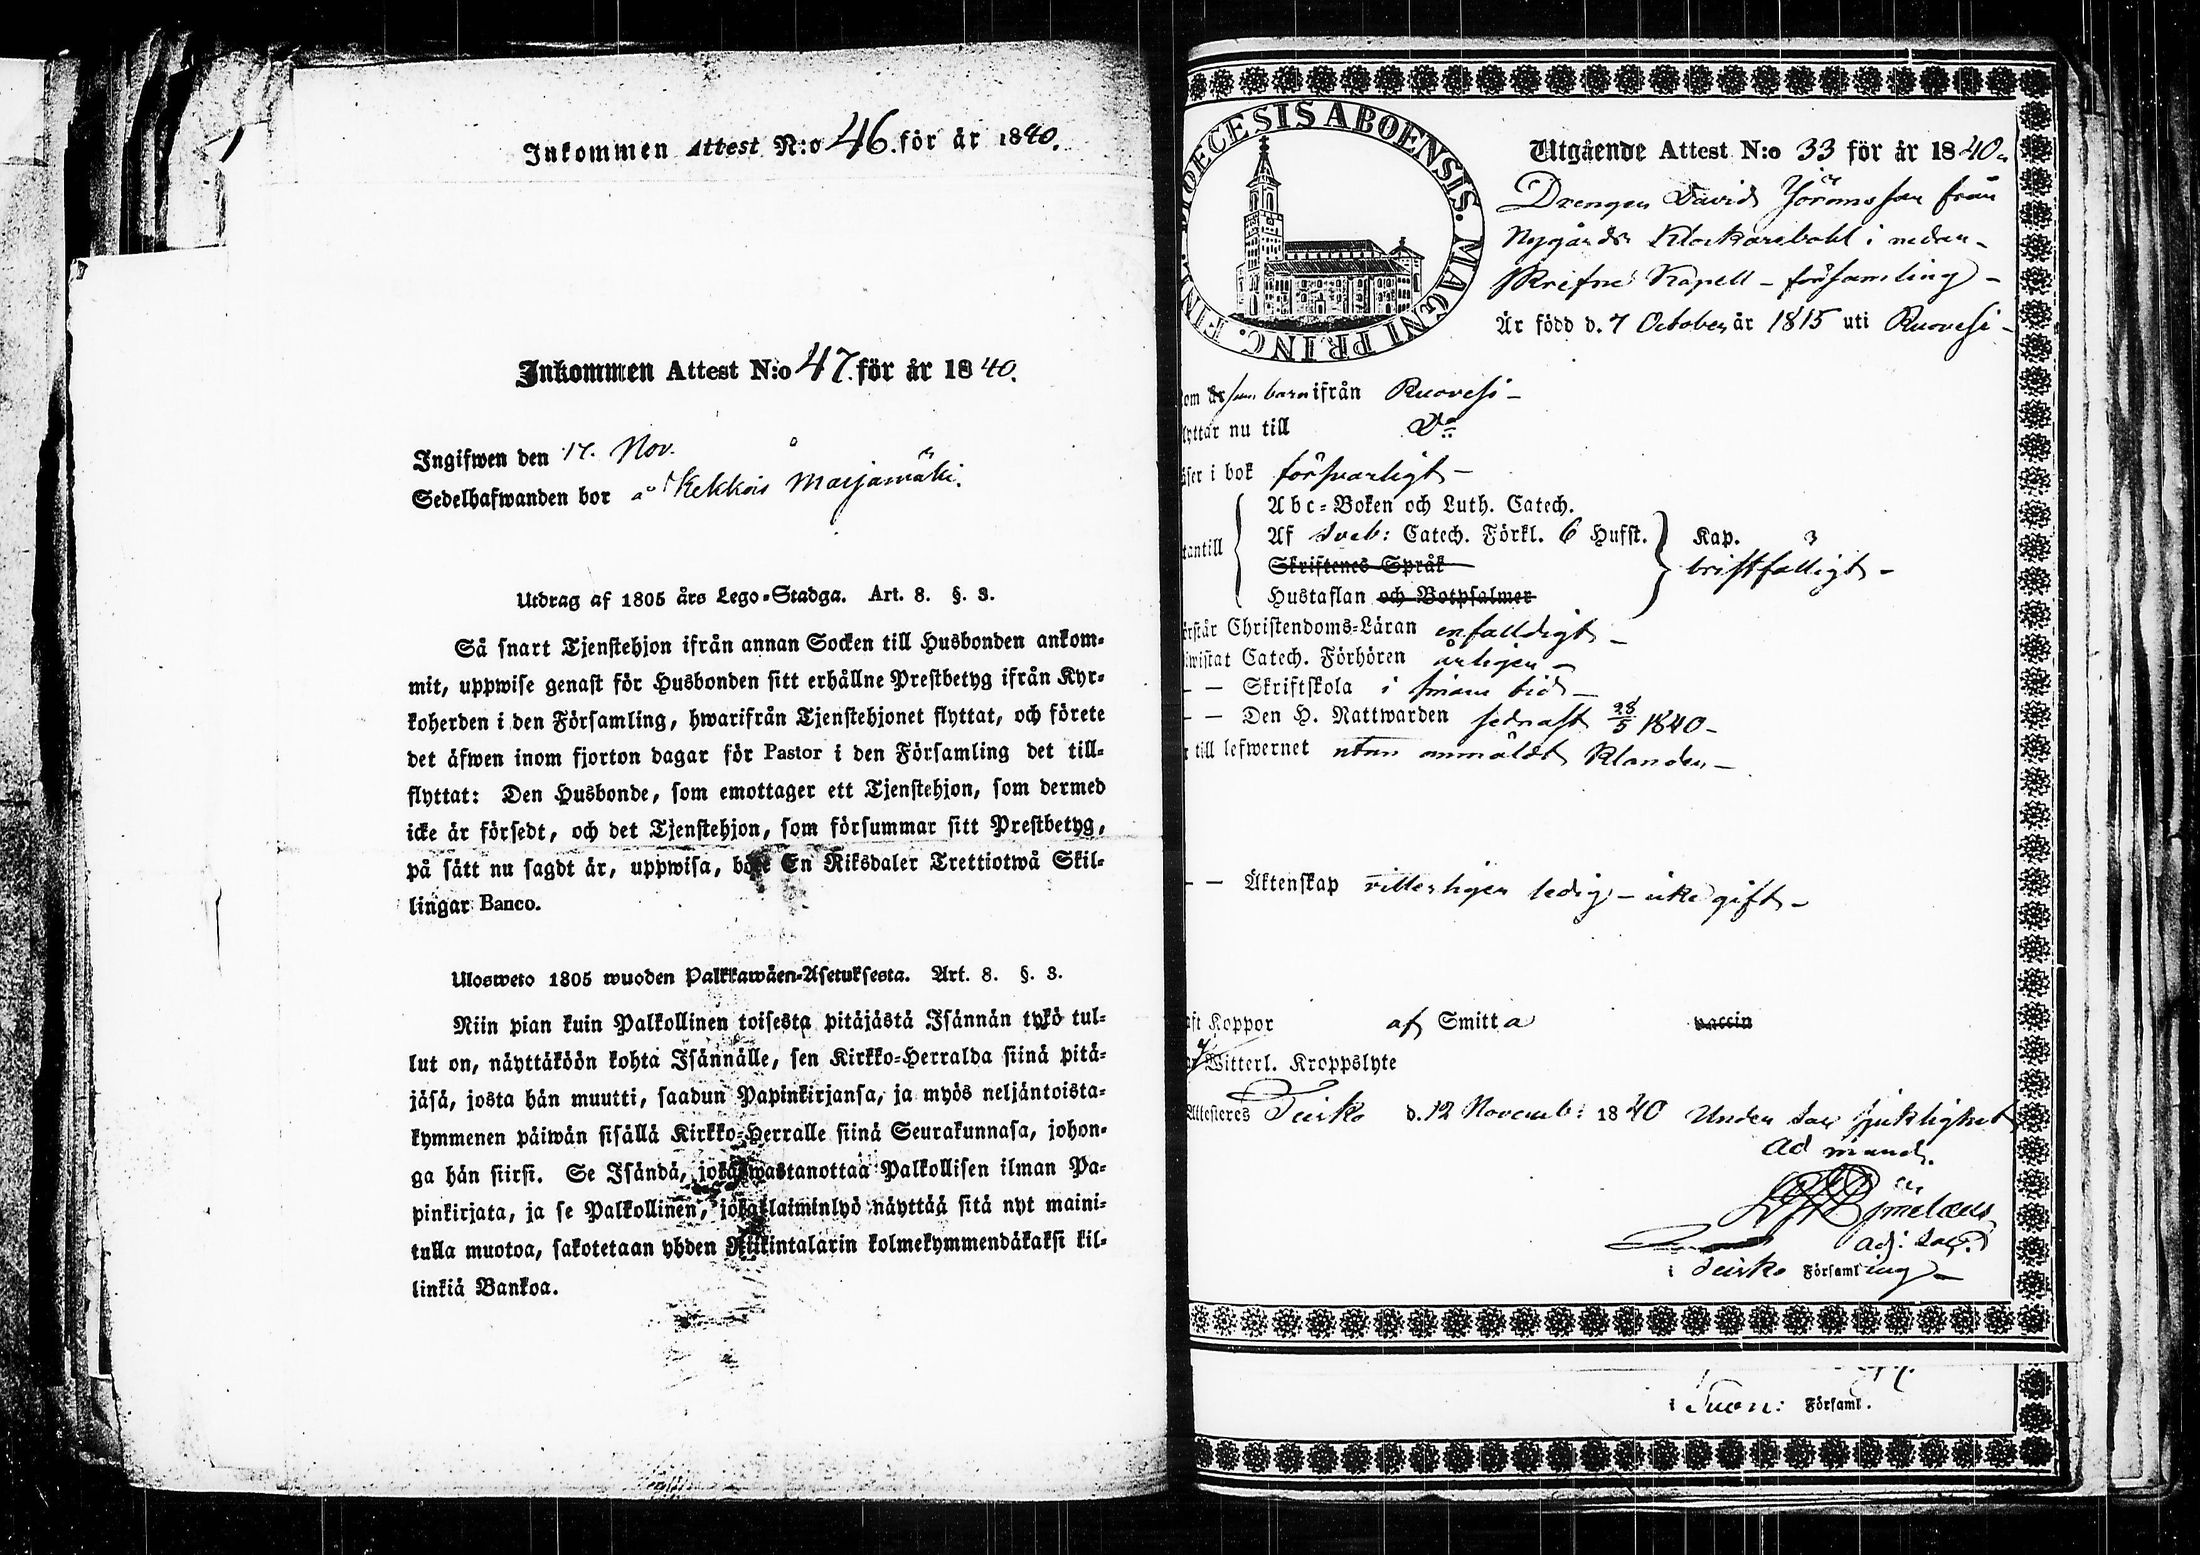 Inkommen Attest N:o 46. för år 1840.
Inkommen Attest N:o 47. för år 1840.
Ingifwen den 17. Nov.
Sedelhafwanden bor å Kekkois Marjamäki.
Utdrag af 1805 års Lego-Stadga. Art. 8. §. 3.
Så snart Tjenstehjon ifrån annan Socken till Husbonden ankom-
mit, uppwise genast för Husbonden sitt erhållne Prestbetyg ifrån Kyr-
koherden i den Församling, hwarifrån Tjenstehjonet flyttat, och förete
det äfwen inom fjorton dagar för Pastor i den Församling det till-
flyttat: Den Husbonde, som emottager ett Tjenstehjon, som dermed
icke är försedt, och det Tjenstehjon, som försummar sitt Prestbetyg,
på sätt nu sagdt är, uppwisa, böte En Riksdaler Trettiotwå Skil-
lingar Banco.
Ulosweto 1805 wuoden Palkkawäen-Asetuksesta. Art. 8. §. 3.
Niin pian kuin Palkollinen toisesta pitäjästä Isännän tykö tul-
lut on, näyttäköön kohta Isännälle, sen Kirkko-Herralda siinä pitä-
jäsä, josta hän muutti, saadun Papinkirjansa, ja myös neljäntoista-
kymmenen päiwän sisällä Kirkko-Herralle siinä Seurakunnasa, johon-
ga hän siirsi. Se Isändä, joka wastanottaa Palkollisen ilman Pa-
pinkirjata, ja se Palkollinen, joka laiminlyö näyttää sitä nyt maini-
tulla muotoa, sakotetaan yhden Riikintalarin kolmekymmendäkaksi kil-
linkiä Bankoa.
DIOECESIS ABOENSIS. MAGNI PRINC. FINL.
Utgående Attest N:o 33 för år 1840.
Drengen David Jöransson från
Nygårds Klockarebohl i nedan-
skrifne Kapell-församling -
Är född d. 7 October år 1815 uti Ruovesi -
om är som barn ifrån Ruovesi -
lyttar nu till Do
äser i bok försvarligt -
Abc-Boken och Luth. Catech.
Af Sveb: Catech. Förkl. 6 Hufst. Kap. 3
tantill
Skriftenes Språk
bristfälligt -
Hustaflan och Botpsalmer
örstår Christendoms-Läran enfaldigt -
wistat Catech. Förhören årligen -
- - Skriftskola i sinom tid -
- - Den H. Nattwarden sednast 28/5 1840 -
r till lefwernet utan anmäldt klander -
- - Äktenskap vitterligen ledig - icke gift -
aft Koppor af Smitta vaccin
Witterl. Kroppslyte
Attesteres Teisko d. 12 Novemb: 1840 Under Sac sjuklighet
Ad mand.
adj: Sac:
i Teisko Församling -
i Församl.